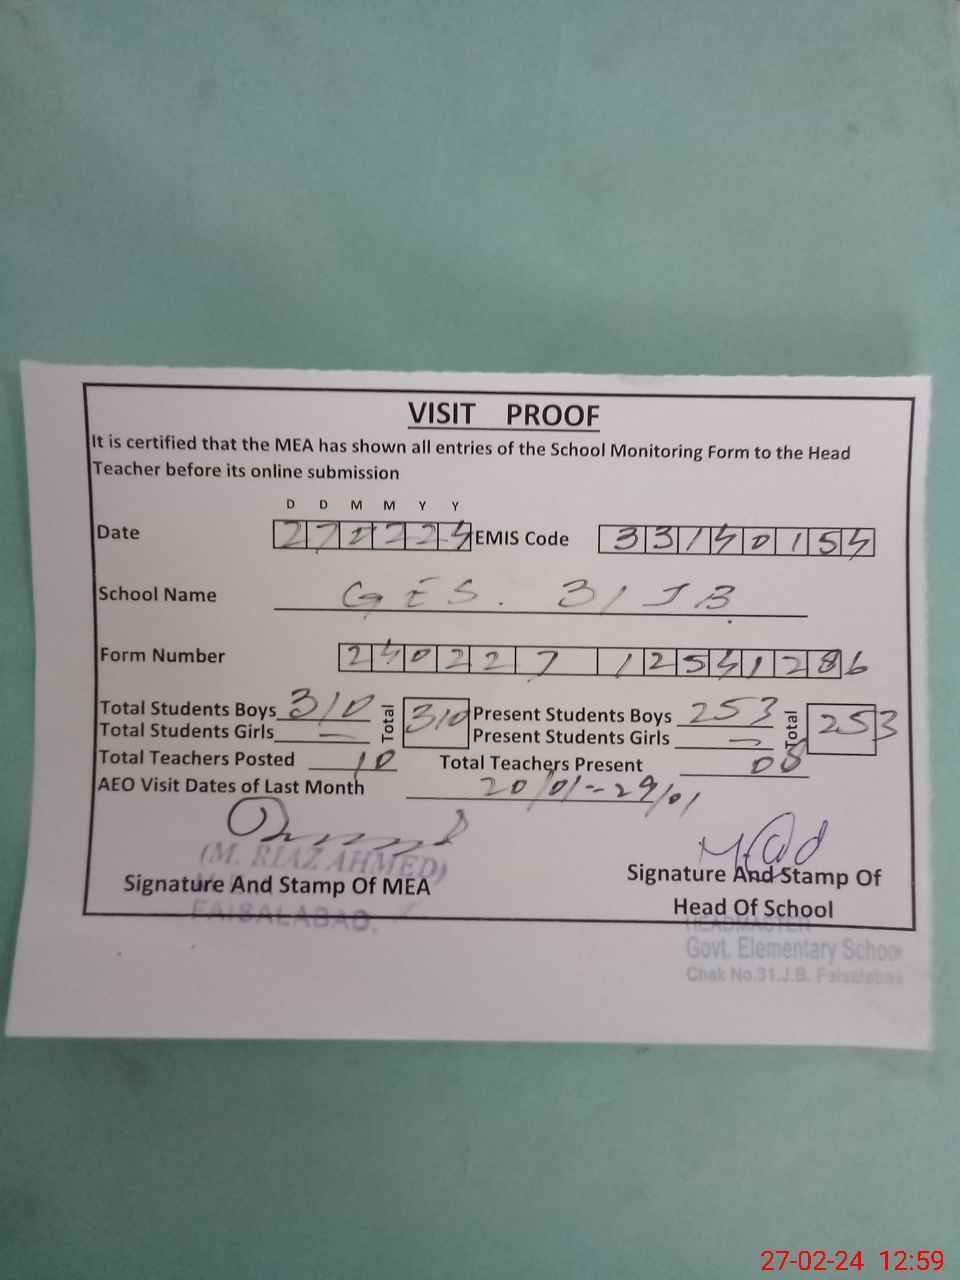 VISIT PROOF
It is certified that the MEA has shown all entries of the School Monitoring Form to the Head
Teacher before its online submission
D D M M Y Y
Date 270224 EMIS Code 33140154
School Name GES. 31 JB
Form Number 240227 12541286
Total Students Boys 310 Total 310 Present Students Boys 253 Total 253
Total Students Girls — Present Students Girls —
Total Teachers Posted 10 Total Teachers Present 08
AEO Visit Dates of Last Month 20/01 -- 29/01
(M. RIAZ AHMED)
Signature And Stamp Of MEA
FAISALABAD.
Signature And Stamp Of
Head Of School
HEADMASTER
Govt. Elementary School
Chak No.31.J.B. Faisalabad
27-02-24 12:59